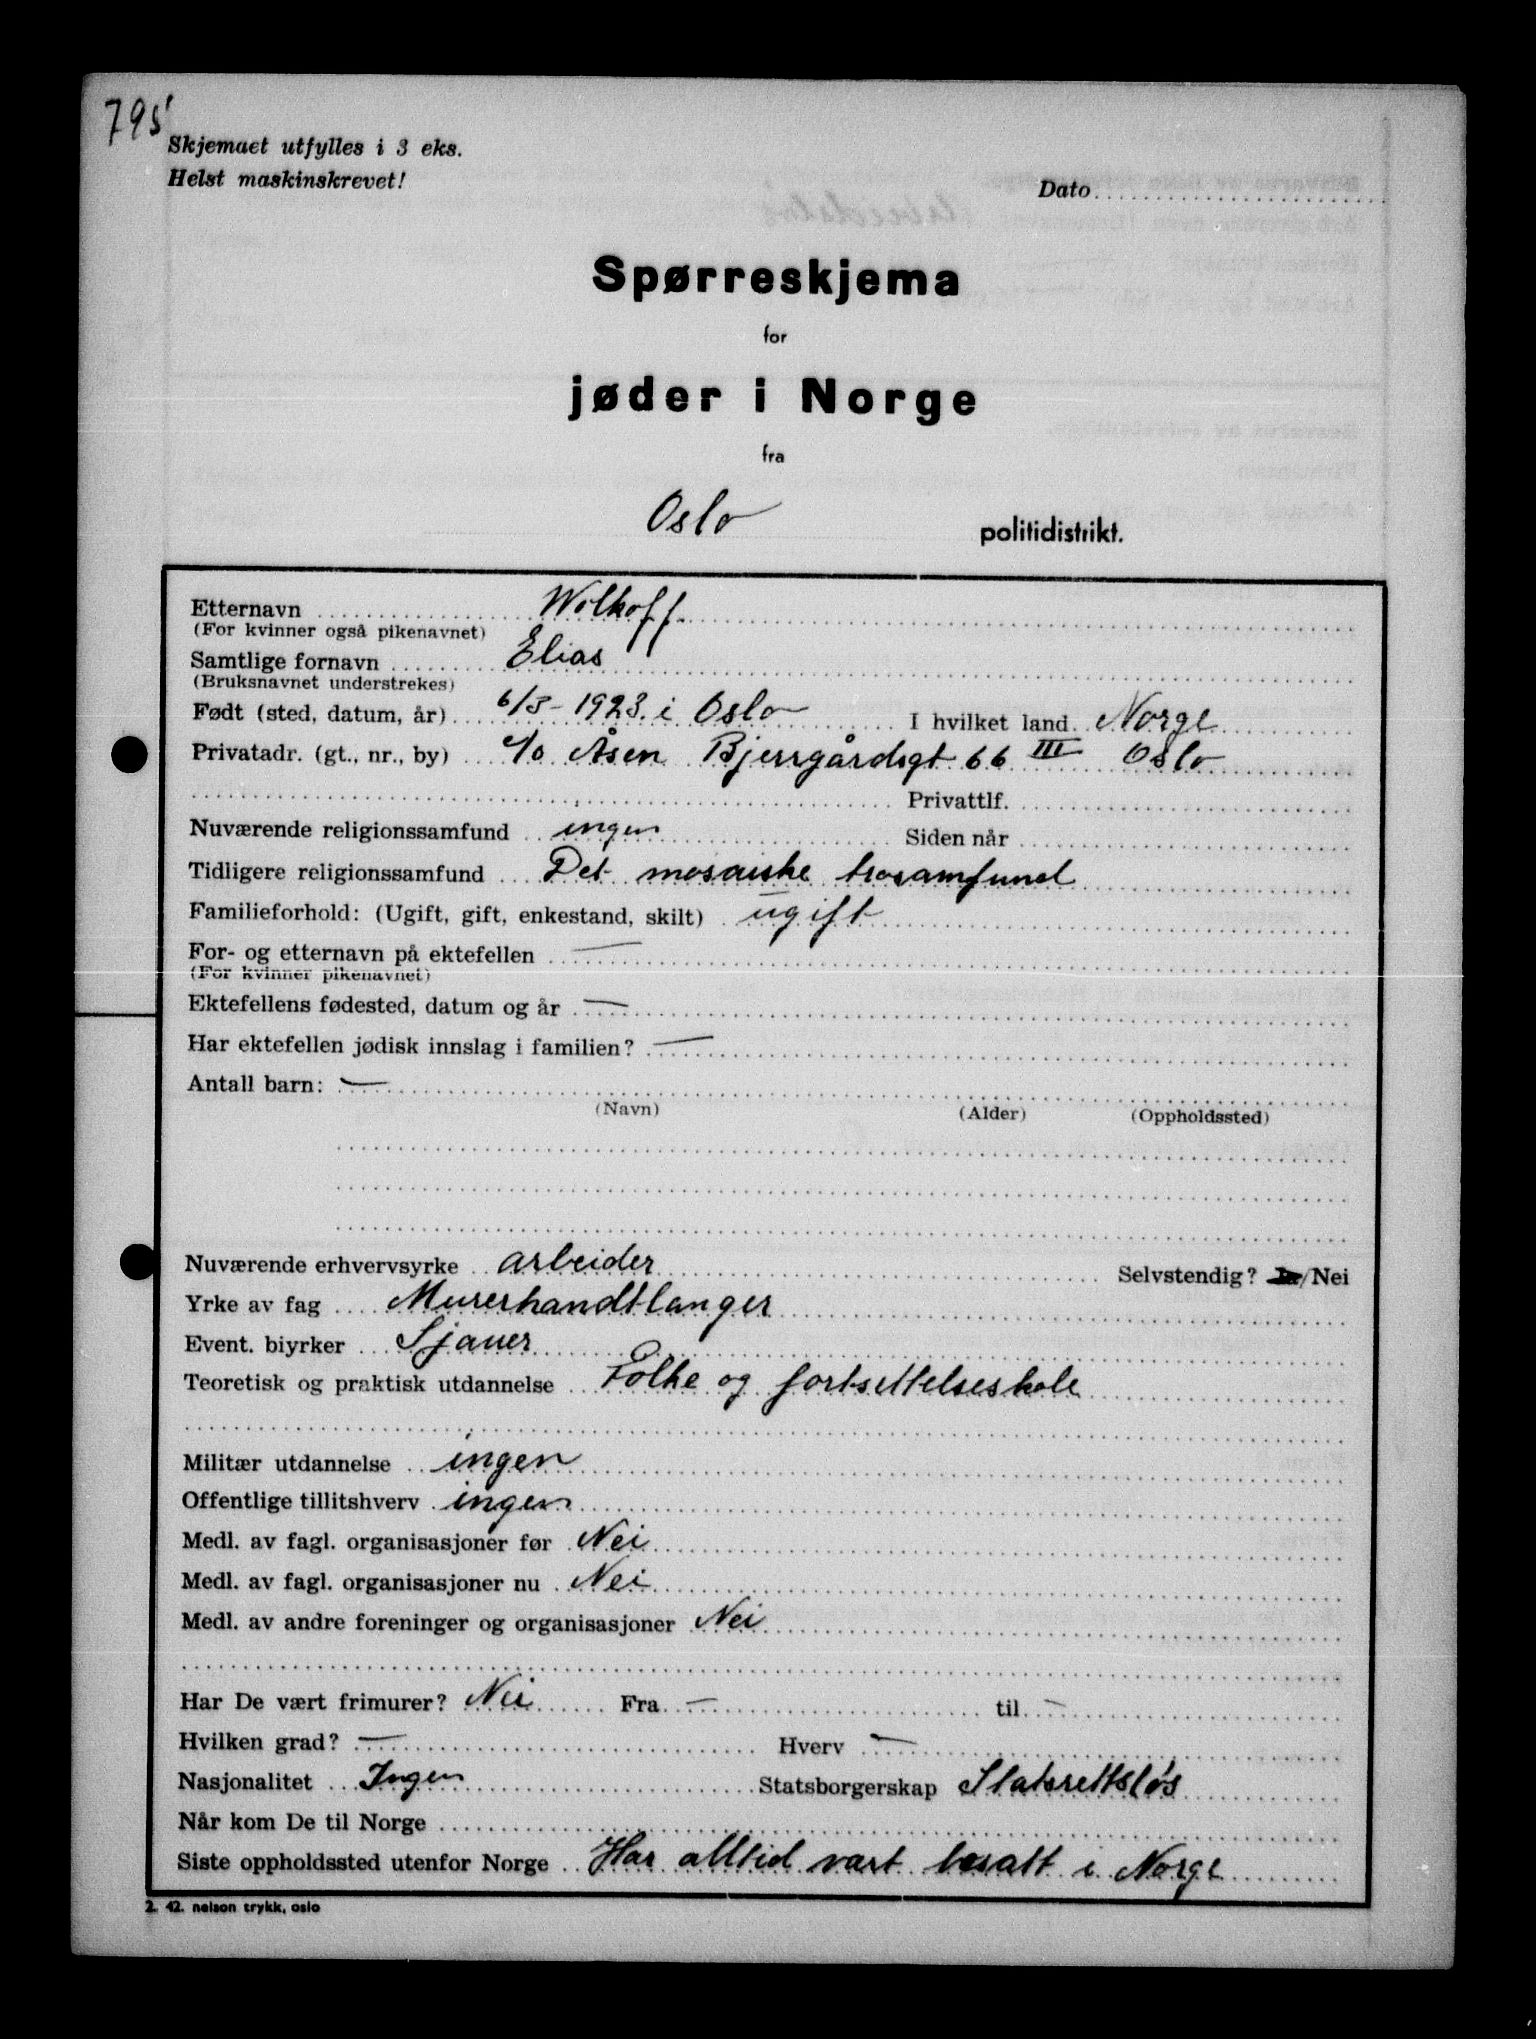 795
Skjemaet utfylles i 3 eks.
Helst maskinskrevet!
Dato
Spørreskjema
for
jøder i Norge
fra
Oslo politidistrikt.
Etternavn Wolhoff.
(For kvinner også pikenavnet)
Samtlige fornavn Elias
(Bruksnavnet understrekes)
Født (sted, datum, år) 6/3-1923. i Oslo I hvilket land Norge
Privatadr. (gt., nr., by) c/o Åsen Bjerrgårdsgt 66 III Oslo
Privattlf.
Nuværende religionssamfund ingen Siden når
Tidligere religionssamfund Det mosaiske trosamfund
Familieforhold: (Ugift, gift, enkestand, skilt) ugift
For- og etternavn på ektefellen —
(For kvinner pikenavnet)
Ektefellens fødested, datum og år —
Har ektefellen jødisk innslag i familien? —
Antall barn: —
(Navn) (Alder) (Oppholdssted)
Nuværende erhvervsyrke arbeider Selvstendig? Ja/Nei
Yrke av fag Murerhandtlanger
Event. biyrker Sjauer
Teoretisk og praktisk utdannelse Folke og fortsettelseskole
Militær utdannelse ingen
Offentlige tillitshverv ingen
Medl. av fagl. organisasjoner før Nei
Medl. av fagl. organisasjoner nu Nei
Medl. av andre foreninger og organisasjoner Nei
Har De vært frimurer? Nei Fra — til —
Hvilken grad? — Hverv —
Nasjonalitet Ingen Statsborgerskap Statsrettsløs
Når kom De til Norge
Siste oppholdssted utenfor Norge Har alltid vært bosatt i Norge
2. 42. nelson trykk, oslo